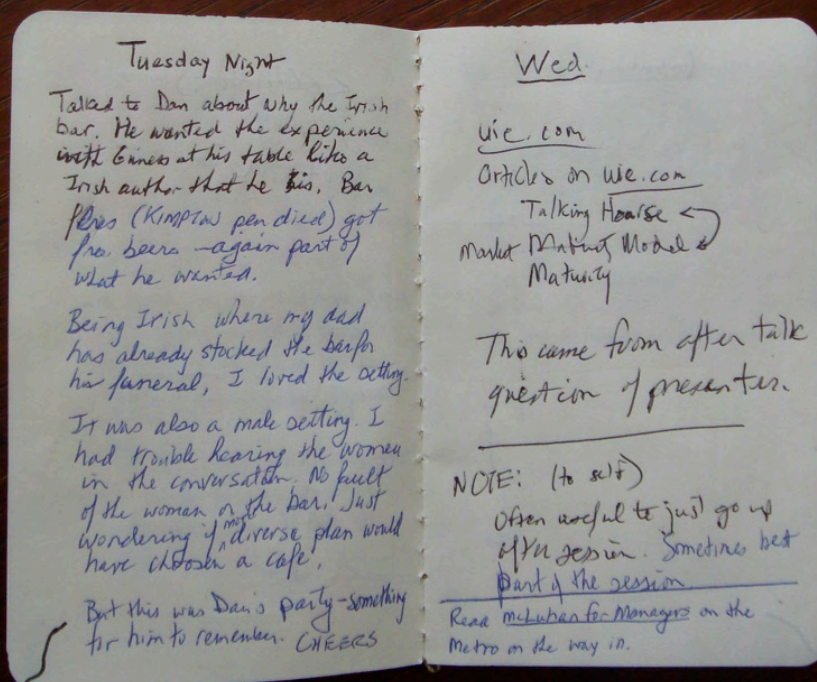 Tuesday Night
Talked to Dan about why the Irish
bar. He wanted the experience
with Guiness at his table like a
Irish author that he is. Bar
(KIMPTON pen died) got
beers - again part of
what he wanted.
Being Irish where my dad
has already stocked the bar for
his funeral, I loved the setting.
It was also a male setting. I
had trouble hearing the women
in the conversation. No fault
of the woman or the bar. Just
wondering if more diverse plan would
have choosen a cafe.
But this was Dan's party - something
for him to remember. CHEERS
Wed.
uie.com
Articles on uie.com
Talking Hourse
Market Maturity Model
Maturity
This came from after talk
question of presenter.
NOTE: (to self)
Often useful to just go up
after session. Sometimes best
part of the session
Read McLuhan for Managers on the
Metro on the way in.